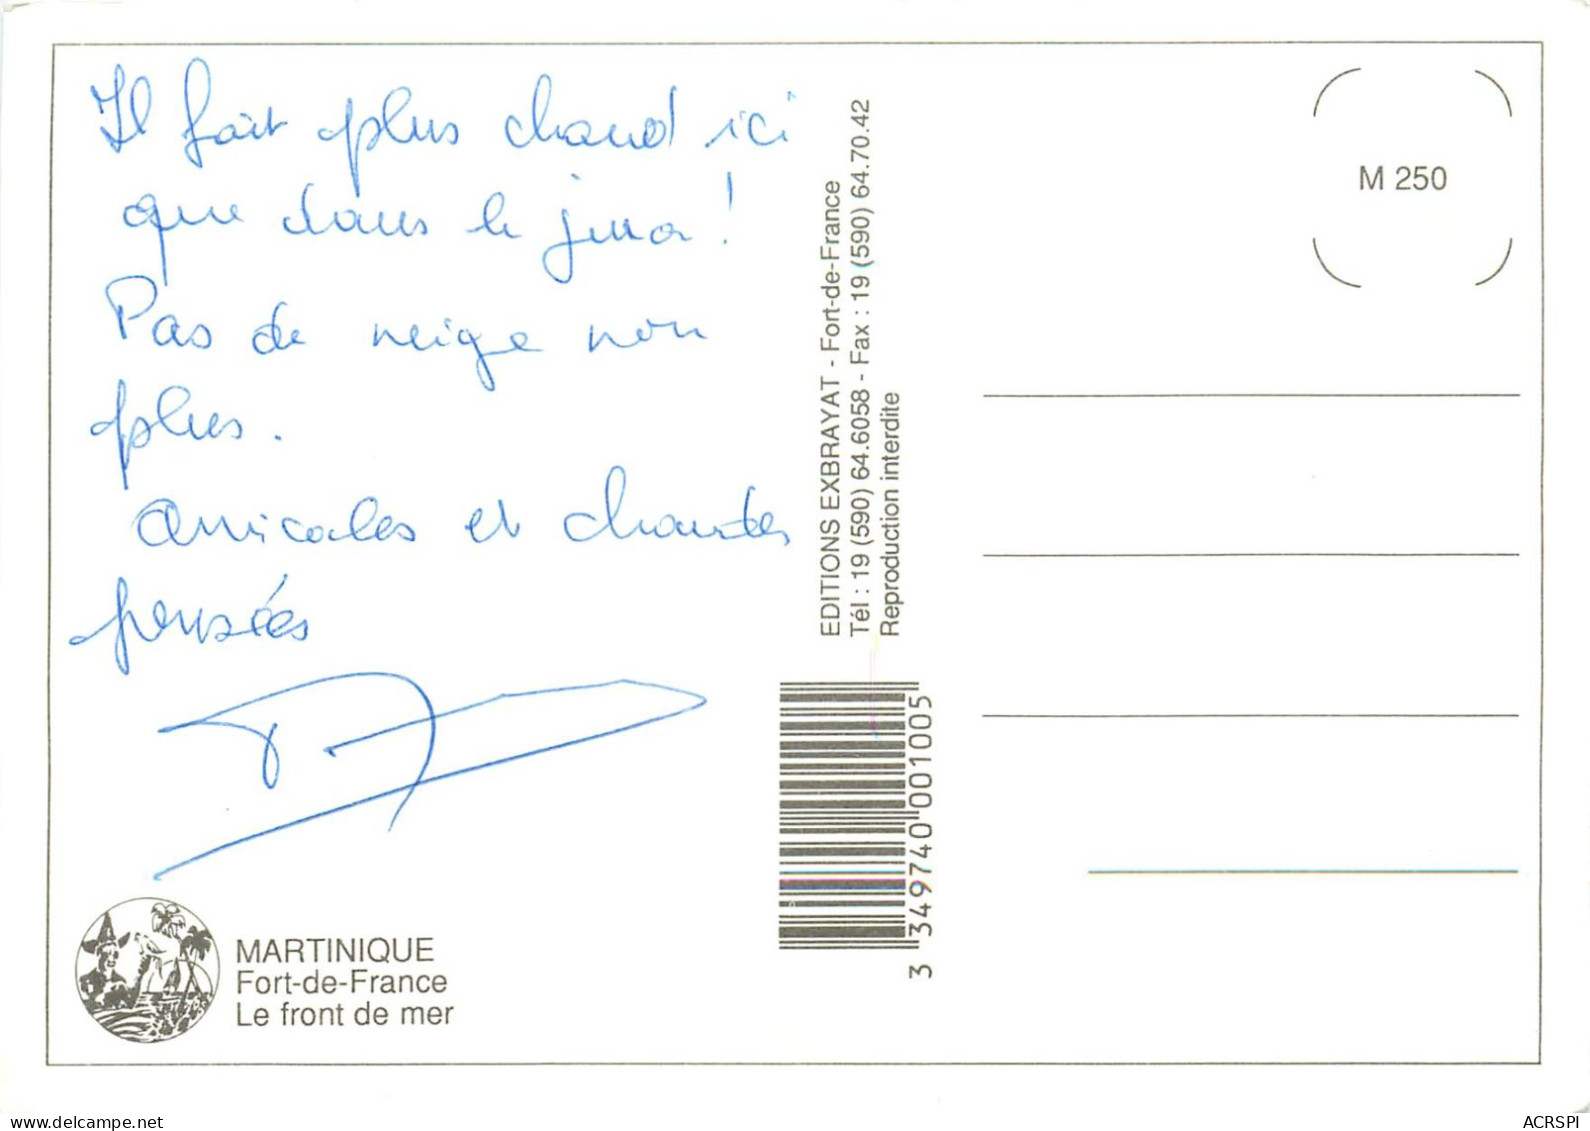 Il fait plus chaud ici
que dans le jura !
Pas de neige non
plus.
Amicales et chaudes
pensées
MARTINIQUE
Fort-de-France
Le front de mer
EDITIONS EXBRAYAT - Fort-de-France
Tél : 19 (590) 64.6058 - Fax : 19 (590) 64.70.42
Reproduction interdite
3 349740 001005
M 250
www.delcampe.net
ACRSPI